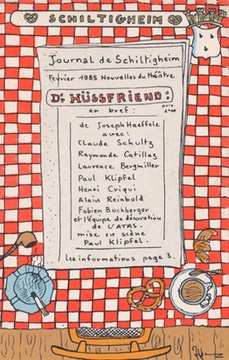 SCHILTIGHEIM
Journal de Schiltigheim
Fevrier 1985 Nouvelles du théâtre
D'r HÜSSFRIEND:
en bref:
de Joseph Haeffele
avec:
Claude Schultz
Raymonde Catillaz
Laurence Bergmiller
Paul Klipfel
Henri Criqui
Alain Reinbold
Fabien Buchberger
et l'équipe de décoration
de L'ATAS.
mise en scène
Paul Klipfel.
les informations page 3.